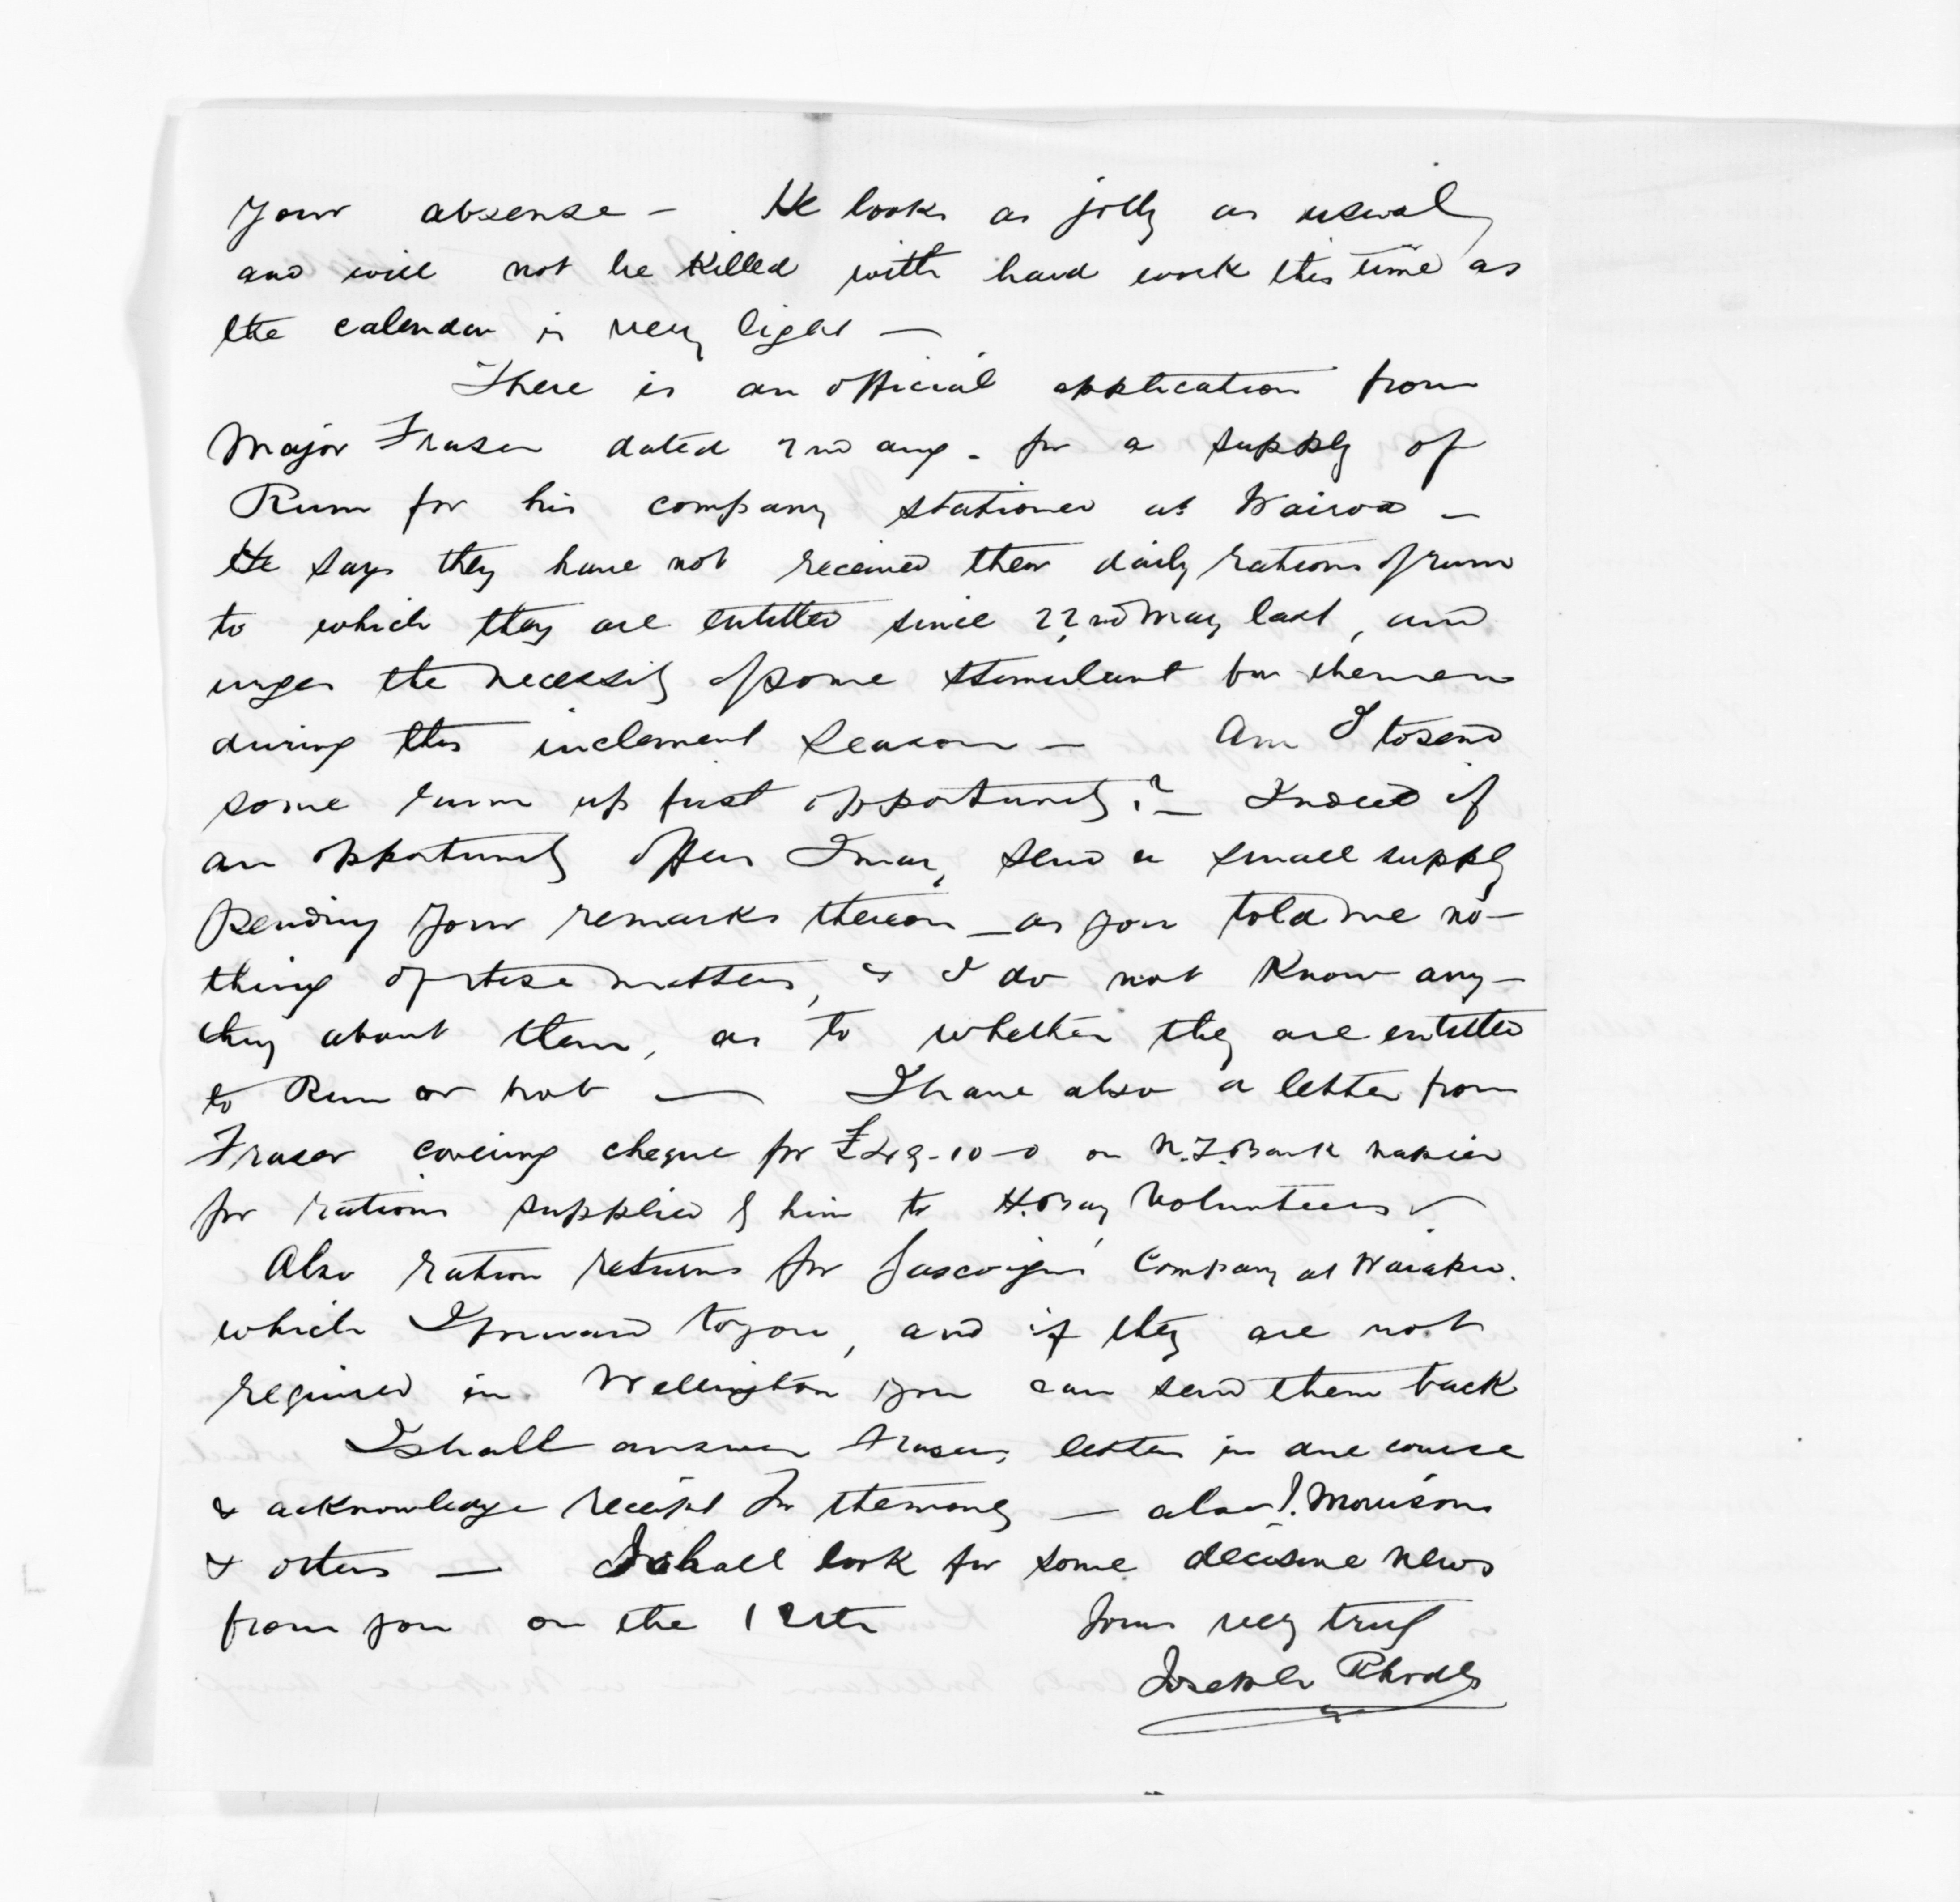 your absense – He looks as jolly as usual
and will not be killed with hard work this time as
the calendar is very light —
There is an official application from
Major Fraser dated 2nd Aug. for a supply of
Rum for his company stationed at Wairoa –
He says they have not received their daily rations of rum
to which they are entitled since 22nd May last, and
urges the necessity of some stimulant for the men
during this inclement season – Am I to send
some rum up first opportunity? – Indeed if
an opportunity offers I may send a small supply
Pending your remarks thereon – as you told me no–
thing of these matters, & I do not know any–
thing about them, as to whether they are entitled
to Rum or not — I have also a letter from
Fraser covering cheque for £49-10-0 on N.Z. Bank Napier
for rations supplied by him to H. Bay Volunteers
Also ration returns for Gascoignes Company at
which I forward to you, and if they are not
required in Wellington you can send them back
I shall answer Frasers letter in due course
& acknowledge receipt for the money — also Morrisons
& others — I shall look for some decisive news
from you on the 12th Yours very truly
Joseph Rhodes